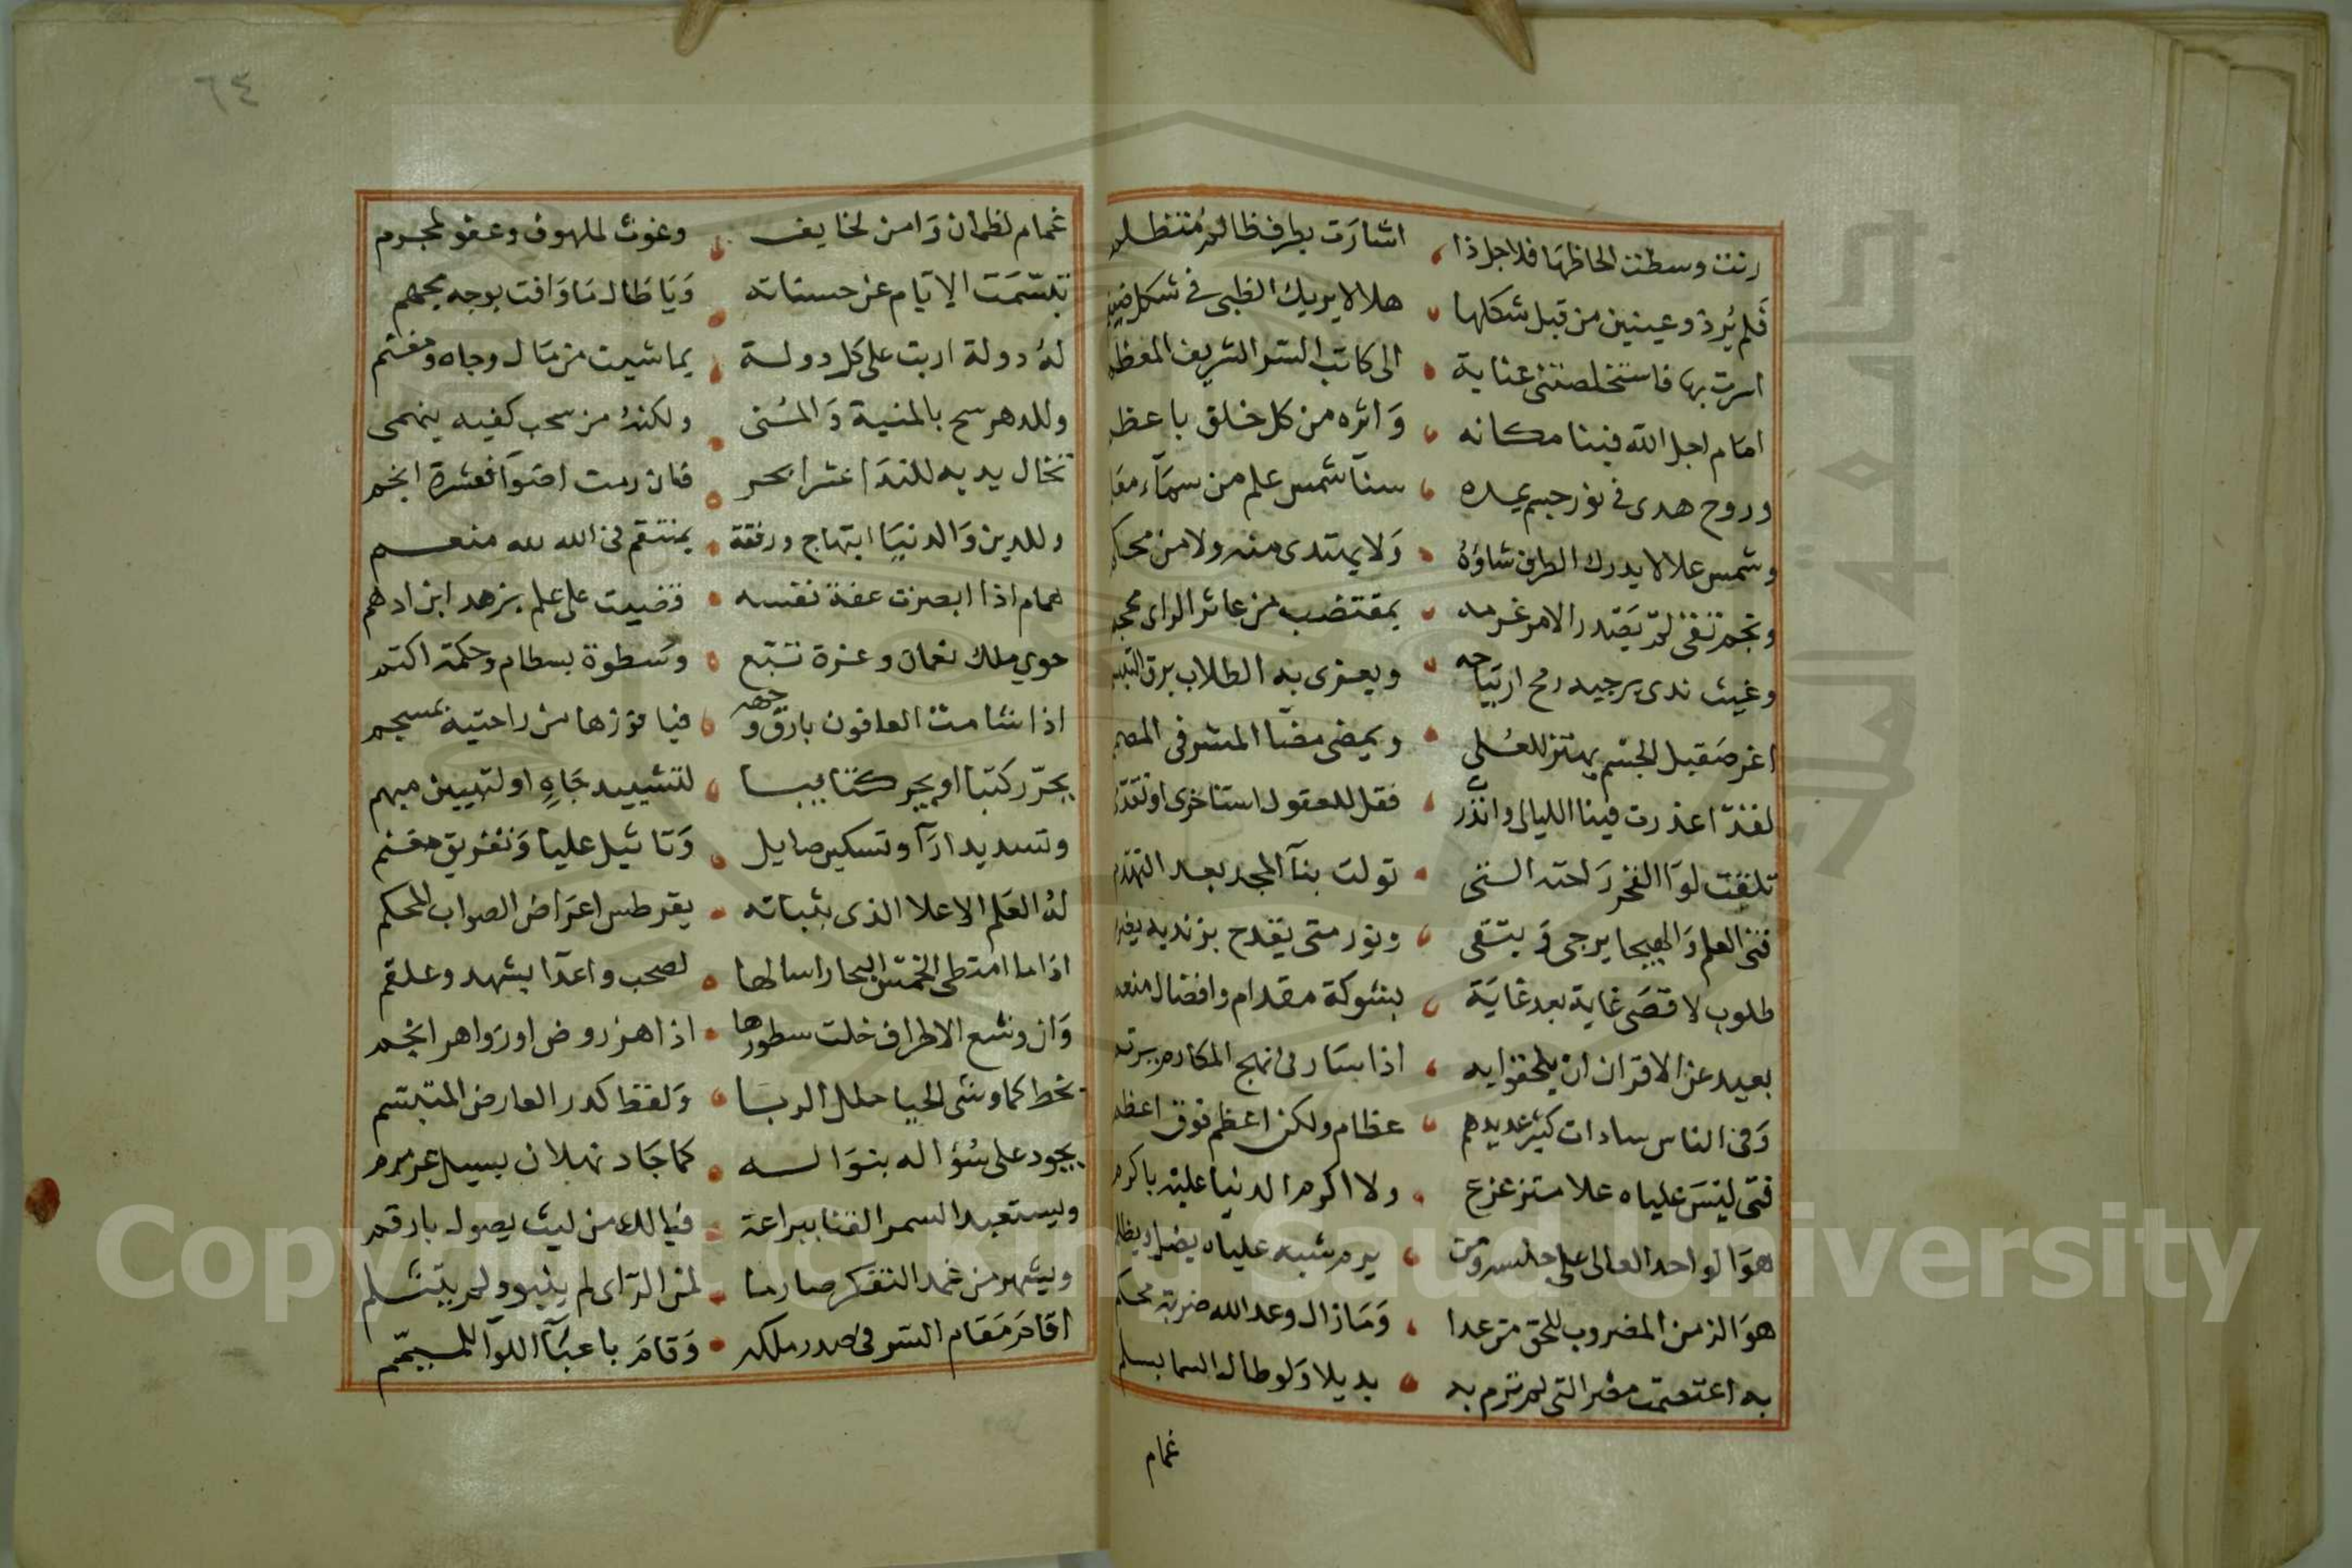 رنت وسطت الحاظها فلاجل ذا اشارت بطرف ظالم متظلم
فلم يرذ وعينين من قبل شكلها هلالا يريك الظبى فى شكل ضيغم
اسرت بها فاستخلصتنى عناية الى كاتب السر الشريف المعظم
امام اجل الله فينا مكانه واثره من كل خلق باعظم
وروح هدى فى نور جسم يمده سنآ شمس علم من سمآء
وشمس علا لا يدرك الطرف شاؤه ولا يمتدى منه ولا من
ونجم يقتدر الامر غرمه بمقتضب من عاثر الراى
وغيث ندى يرجيه رمح ارتياحه ويعزى به الطلاب برق التبسم
اغر صقيل الجسم يهتز للعلى ويمضى مضآ المشرفى المصمم
لقد اعذرت فينا الليالى وانذرت فقل للعقول استاخرى او تقدمى
تلقت لوآ الفخر راحته التى تولت بنآ المجد بعد التهدم
فتى العلم والهيجا يرجى ويتقى ونور متى يقدح بزنديه
طلوب لاقصى غاية بعد غاية بشوكة مقدام وافضال منعم
بعيد عن الاقران ان يلحقوا به اذا سار فى نهج المكارم يرتم
وفى الناس سادات كثير عديدهم عظام ولكن اعظم فوق اعظم
فتى ليس علياه علا متزعزع ولا اكرم الدنيا عليه باكرم
هو الواحد العالى على جلسه ومن يرم شبه علياه يضل ويظلم
هو الزمن المضروب للحق من عدا وما زال وعد الله ضربة محكم
به اعتصمت مصر التى لم ترم به بديلا ولو طال السما بسلم
غمام
٦٤
غمام لظمان وامن لخايف وغوث لملهوف وعفو لمجرم
تبسمت الايام عن حسناته ويا طال ما وافت بوجه مجهم
له دولة اربت على كل دولة بما شيت من مال وجاه ومغنم
وللدهر سح بالمنية والمنى ولكنه من سحب كفيه ينهمى
تخال يديه للندا عشر ابحر فان رمت اضوآ فعشرة انجم
وللدين والدنيا ابتهاج ورفقة بمنتقم فى الله لله منعم
همام اذا ابصرت عفة نفسه قضيت على علم بزهد ابن ادهم
حوى ملك نعمان وعزة تبع وسطوة بسطام وحكمة اكثم
اذا شامت العافون بارق وجهه فيا فوزها من راحتيه بمسجم
يحرر كتبا او يجر كتايبا لتشييد جاه او لتبيين مبهم
وتسديد ارآ وتسكين صايل وتاثيل عليا وتفريق مغنم
له القلم الاعلا الذى بثباته يقرطس اعراض الصواب المحكم
اذا ما امتطى الخمس البحار اسالها لصحب واعدآ بشهد وعلقم
وان وشع الاطراف خلت سطورها اذا هز روض او زواهر انجم
بخط كما وشى الحيا حلل الربا ولفظ كدر العارض المتبسم
يجود على سؤاله بنواله كما جاد ثهلان بسيل عرمرم
ويستعبد السمر القنا ببراعة فيالك من ليث يصول بارقم
ويشهر من غمد التفكر صارما لمن الراى لم ينبو ولم يتثلم
اقام مقام السر فى صدر ملكه وقام باعبآ اللوآ الميمم
Copyright © King Saud University